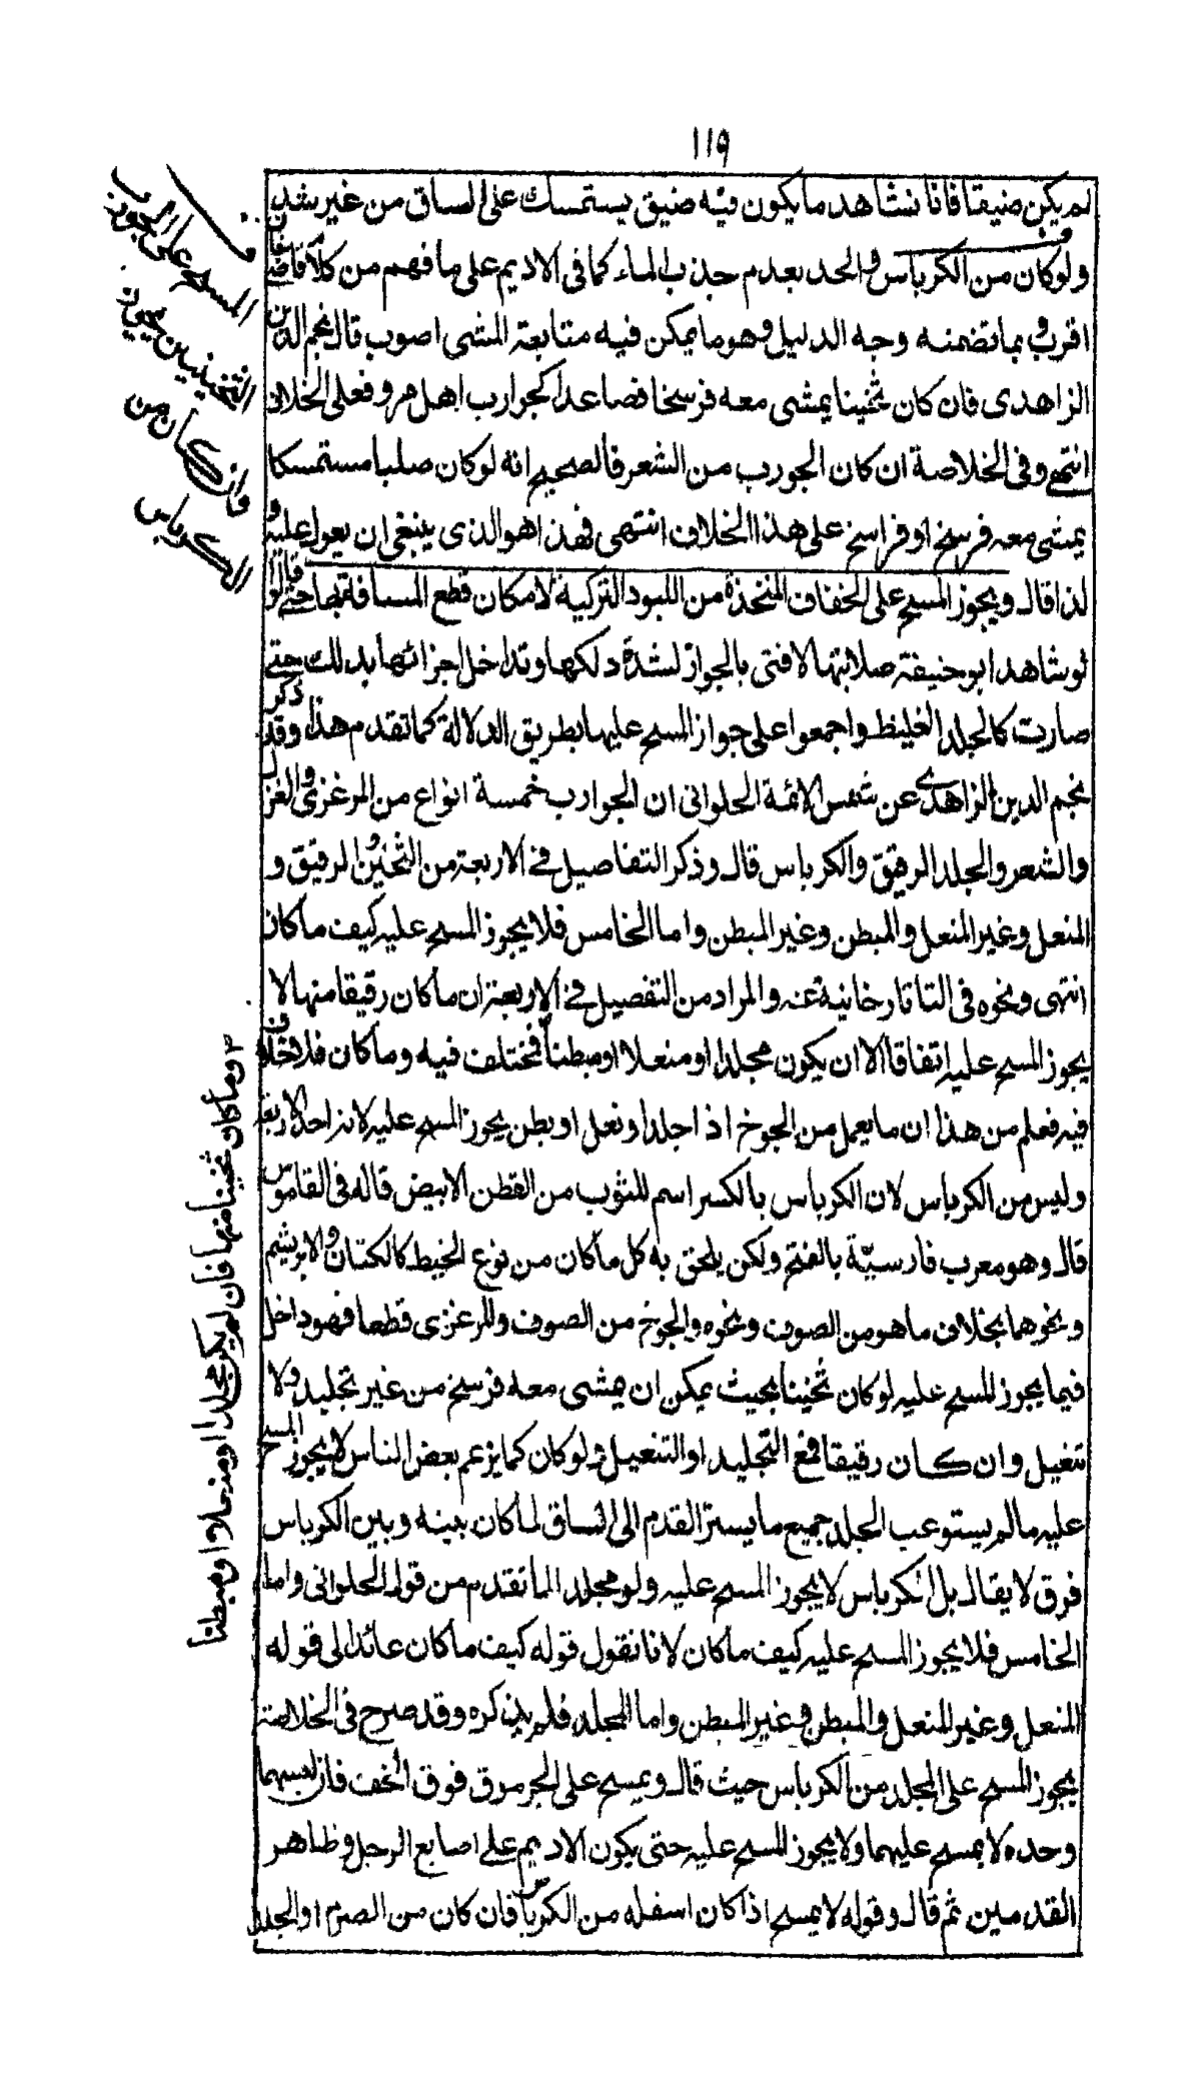 ١١٩
لم يكن ضيقا فانا نشاهد ما يكون فيه ضيق يستمسك على الساق من غير شد وان
ولو كان من الكرباس والحد بعدم جذب الماء كما في الاديم على ما فهم من كلام قاضي خان
اقرب وبما تضمنه وجه الدليل وهو ما يمكن فيه متابعة المشى اصوب قال نجم الدين
الزاهدى فان كان ثخينا يمشى معه فرسخا فصاعدا كجوارب اهل مرو فعلى الخلاف
انتهى وفى الخلاصة ان كان الجورب من الشعر فالصحيح انه لو كان صلبا مستمسكا
يمشى معه فرسخ او فراسخ على هذا الخلاف انتهى فهذا هو الذى ينبغى ان يعول عليه و
لذا قالـ ويجوز المسح على الخفاف المتخذة من اللبود التركية لامكان قطع المسافة بها حتى قالوا
لو شاهد ابو حنيفة صلابتها لافتى بالجواز لشدة دلكها وتداخل اجزائها بذلك حتى
صارت كالجلد الغليظ واجمعوا على جواز المسح عليها بطريق الدلالة كما تقدم هذا وقد ذكر
نجم الدين الزاهدى عن شمس الائمة الحلوانى ان الجوارب خمسة انواع من المرغزى والغزل
والشعر والجلد الرقيق والكرباس قالـ وذكر التفاصيل فى الاربعة من الثخين والرقيق و
المنعل وغير المنعل والمبطن وغير المبطن واما الخامس فلا يجوز المسح عليه كيف ما كان
انتهى ونحوه فى التاتارخانية عنه والمراد من التفصيل فى الاربعة ان ما كان رقيقا منها لا
يجوز المسح عليه اتفاقا الا ان يكون مجلدا او منعلا او مبطنا ٢ فمختلف فيه وما كان فلا خلاف
فيه فعلم من هذا ان ما يعمل من الجوخ اذا جلد او نعل او بطن يجوز المسح عليه لانه احد الاربعة
وليس من الكرباس لان الكرباس بالكسر اسم للثوب من القطن الابيض قاله فى القاموس
قالـ وهو معرب فارسيّة بالفتح ولكن يلحق به كل ما كان من نوع الخيط كالكتان والابريشم
ونحوهما بخلاف ما هو من الصوف ونحوه والجوخ من الصوف والمرغزى قطعا فهو داخل
فيما يجوز المسح عليه لو كان ثخينا بحيث يمكن ان يمشى معه فرسخ من غير تجليد ولا
تنعيل وان كان رقيقا فمع التجليد او التنعيل ولو كان كما يزعم بعض الناس لا يجوز المسح
عليه ما لم يستوعب الجلد جميع ما يستر القدم الى الساق لما كان بينه وبين الكرباس
فرق لا يقالـ بل الكرباس لا يجوز المسح عليه ولو مجلدا لما تقدم من قول الحلوانى واما
الخامس فلا يجوز المسح عليه كيف ما كان لانا نقول قوله كيف ما كان عائد الى قوله
المنعل وغير المنعل والمبطن وغير المبطن واما المجلد فلم يذكره وقد صرح فى الخلاصة
يجوز المسح على المجلد من الكرباس حيث قالـ ويمسح على الجرموق فوق الخف فان لبسهما
وحده لا يمسح عليهما ولا يجوز المسح عليه حتى يكون الاديم على اصابع الرجل وظاهر
القدمين ثم قالـ وقوله لا يمسح اذا كان اسفله من الكرباس فان كان من الصرم او الجلد
المسح على الجورب
الثخينين يجوز
وان كان من
الكرباس
٢ وما كان ثخينا منها فان لم يكن مجلدا او منعلا او مبطنا